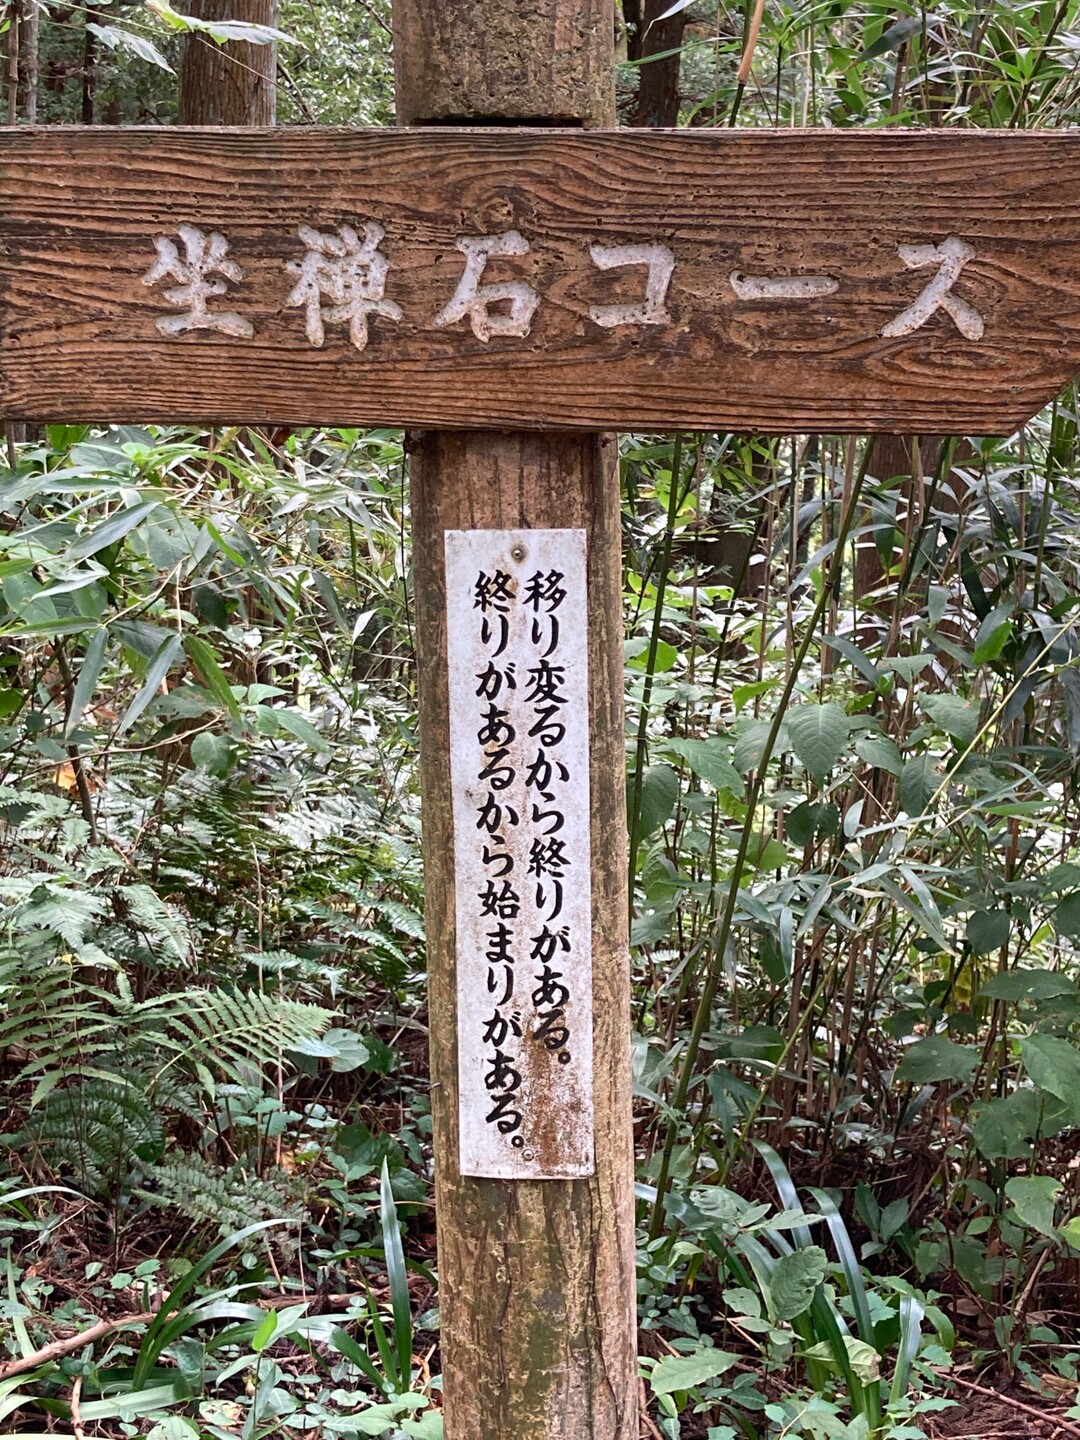 坐禅石コース
移り変るから終りがある。
終りがあるから始まりがある。